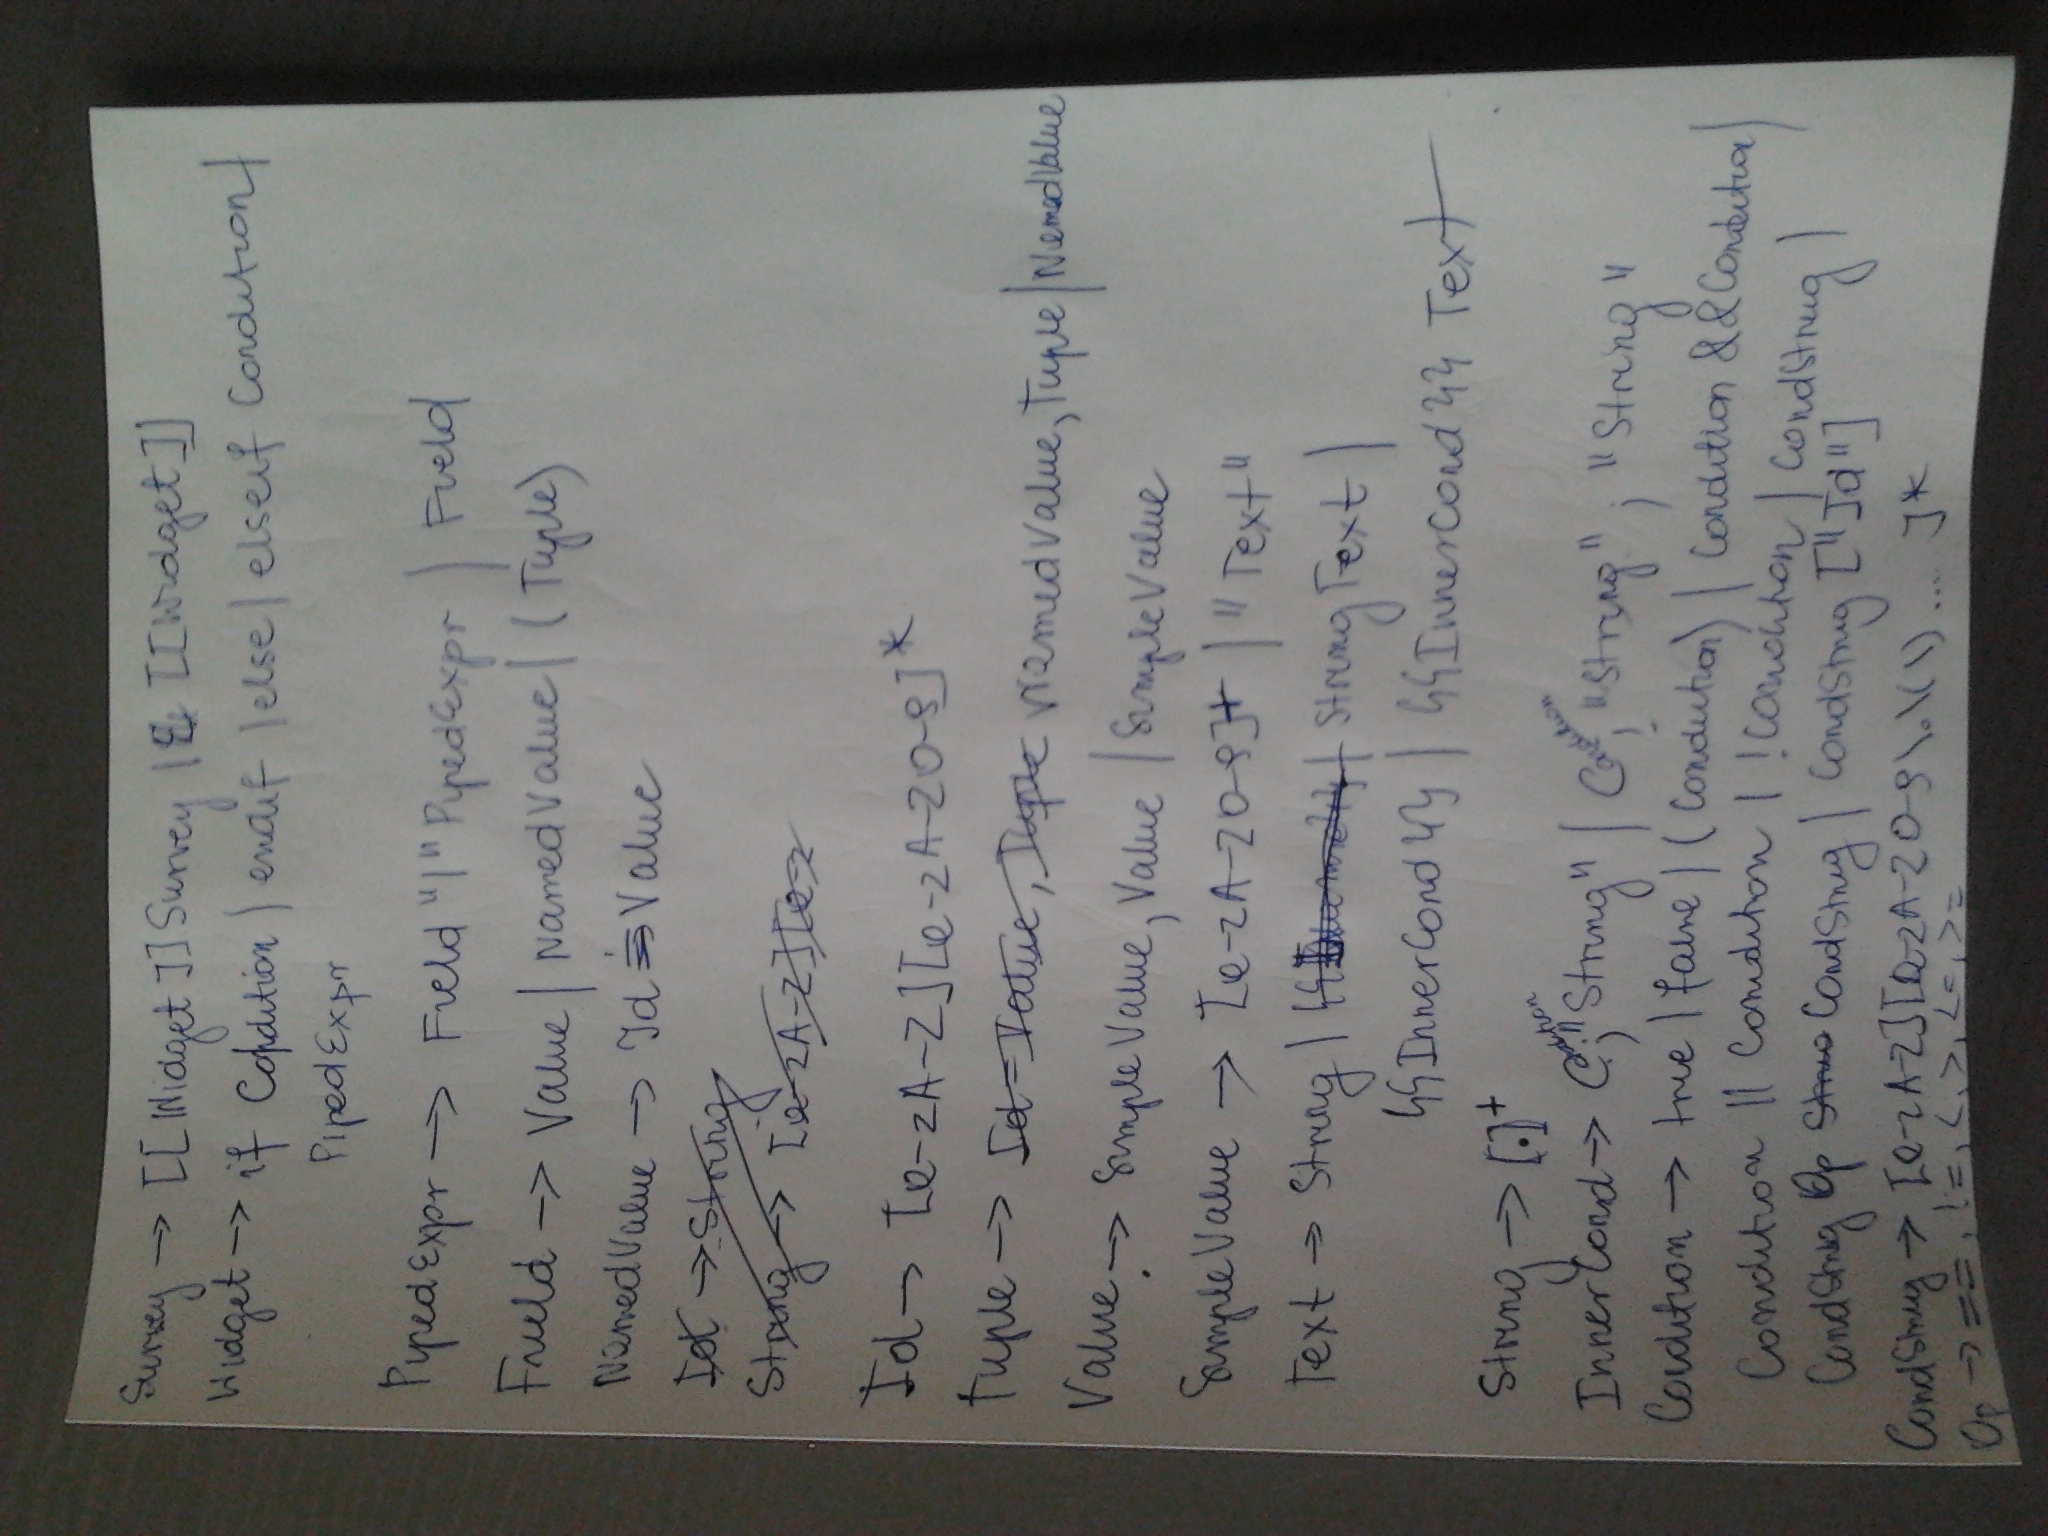 Survey → [[Widget]] Survey | [[Widget]]
Widget → if Condition | endif | else | elseif Condition |
PipedExpr
PipedExpr → Field "|" PipedExpr | Field
Field → Value | NamedValue | (Tuple)
NamedValue → Id = Value
Id → String
String → [a-zA-Z][a-z
Id → [a-zA-Z][a-zA-Z0-9]*
Tuple → Id = Value, Tuple NamedValue, Tuple | NamedValue
Value → SimpleValue, Value | SimpleValue
SimpleValue → [a-zA-Z0-9]+ | "Text"
Text → String | String Text |
{{InnerCond}} | {{InnerCond}} Text
String → [.]+
InnerCond → Condition ; "String" | Condition ; "String" ; "String"
Condition → true | false | (Condition) | Condition && Condition |
Condition || Condition | !Condition | CondString |
CondString Op CondString | CondString ["Id"]
CondString → [a-zA-Z][a-zA-Z0-9\.\(\) .... ]*
Op → ==, !=, <, >, <=, >=